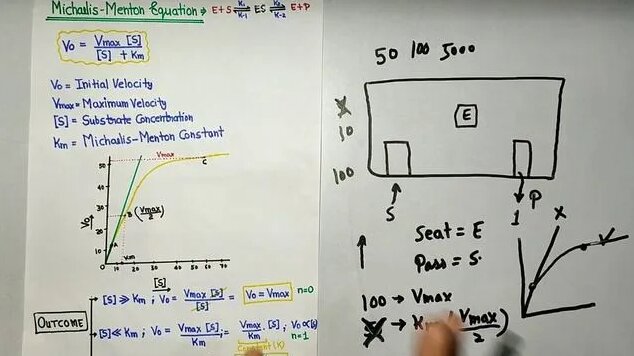 Michaelis-Menton Equation → E+S K1 K-1 ES K2 K-2 E+P
Vo = Vmax [S] / [S] + Km
Vo = Initial Velocity
Vmax = Maximum Velocity
[S] = Substrate Concentration
Km = Michaulis-Menton Constant
50
40
30
20
10
0
Vo
Vmax
C
B (Vmax/2)
A
Km
10 20 30 40 50 60 70
[S]
OUTCOME
[S] >> Km ; Vo = Vmax [S] / [S] = Vo = Vmax n=0
[S] << Km ; Vo = Vmax [S] / Km = Vmax / Km . [S] ; Vo ∝ [S] n=1
Constant (K)
50 100 5000
10
100
E
S
P
1
Seat = E
Pass = S.
100 → Vmax
→ Km (Vmax/2)
X